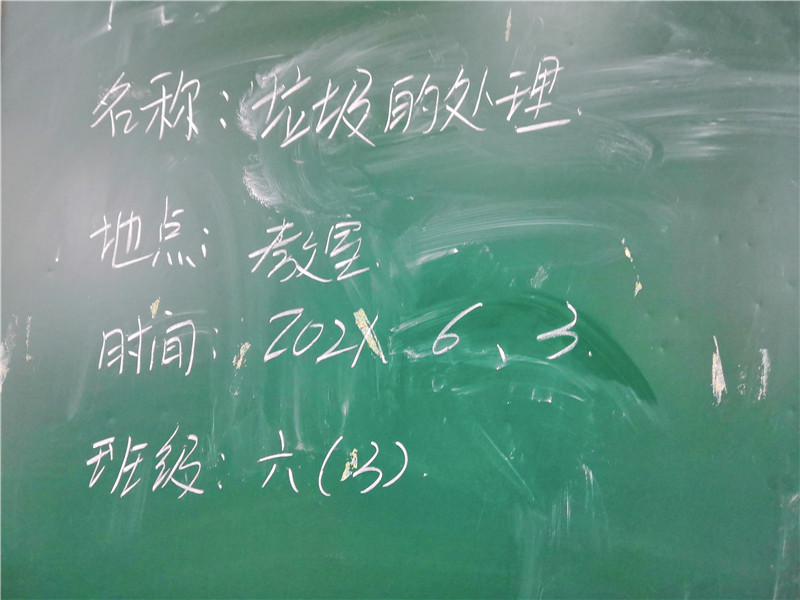 名称：垃圾的处理.
地点：教室.
时间：2021.6、3.
班级：六(3).